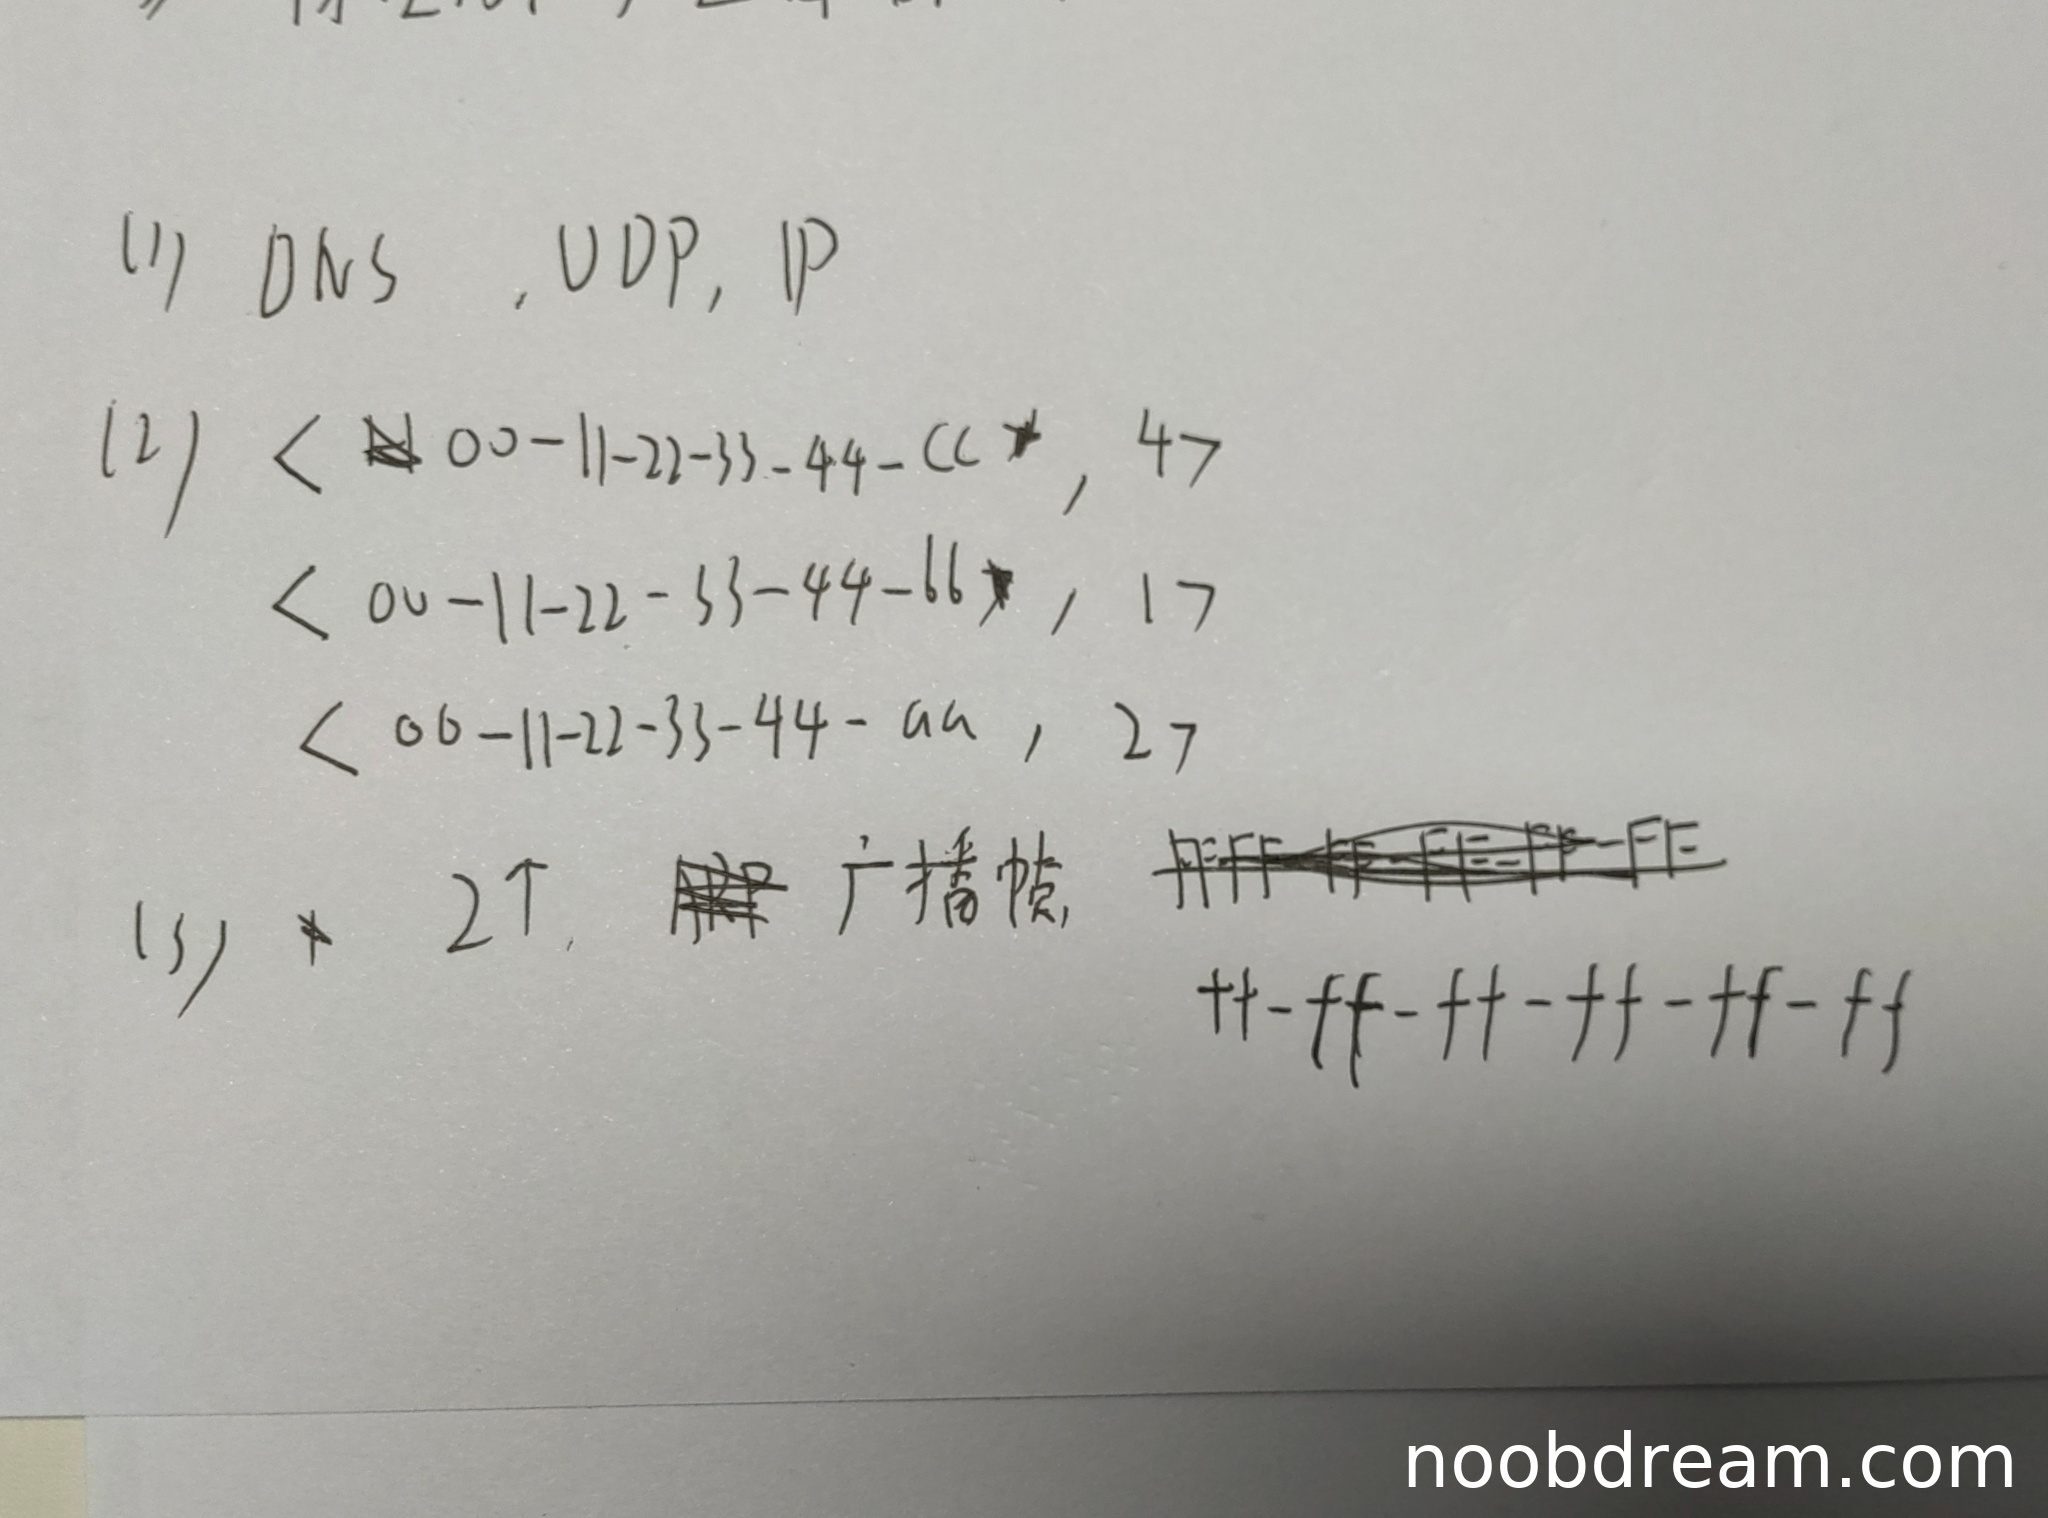 (1) DNS , UDP, IP
(2) < 00-11-22-33-44-CC , 4>
< 00-11-22-33-44-bb , 1>
< 00-11-22-33-44-aa , 2>
(3) 2个. 广播帧,
ff-ff-ff-ff-ff-ff
noobdream.com